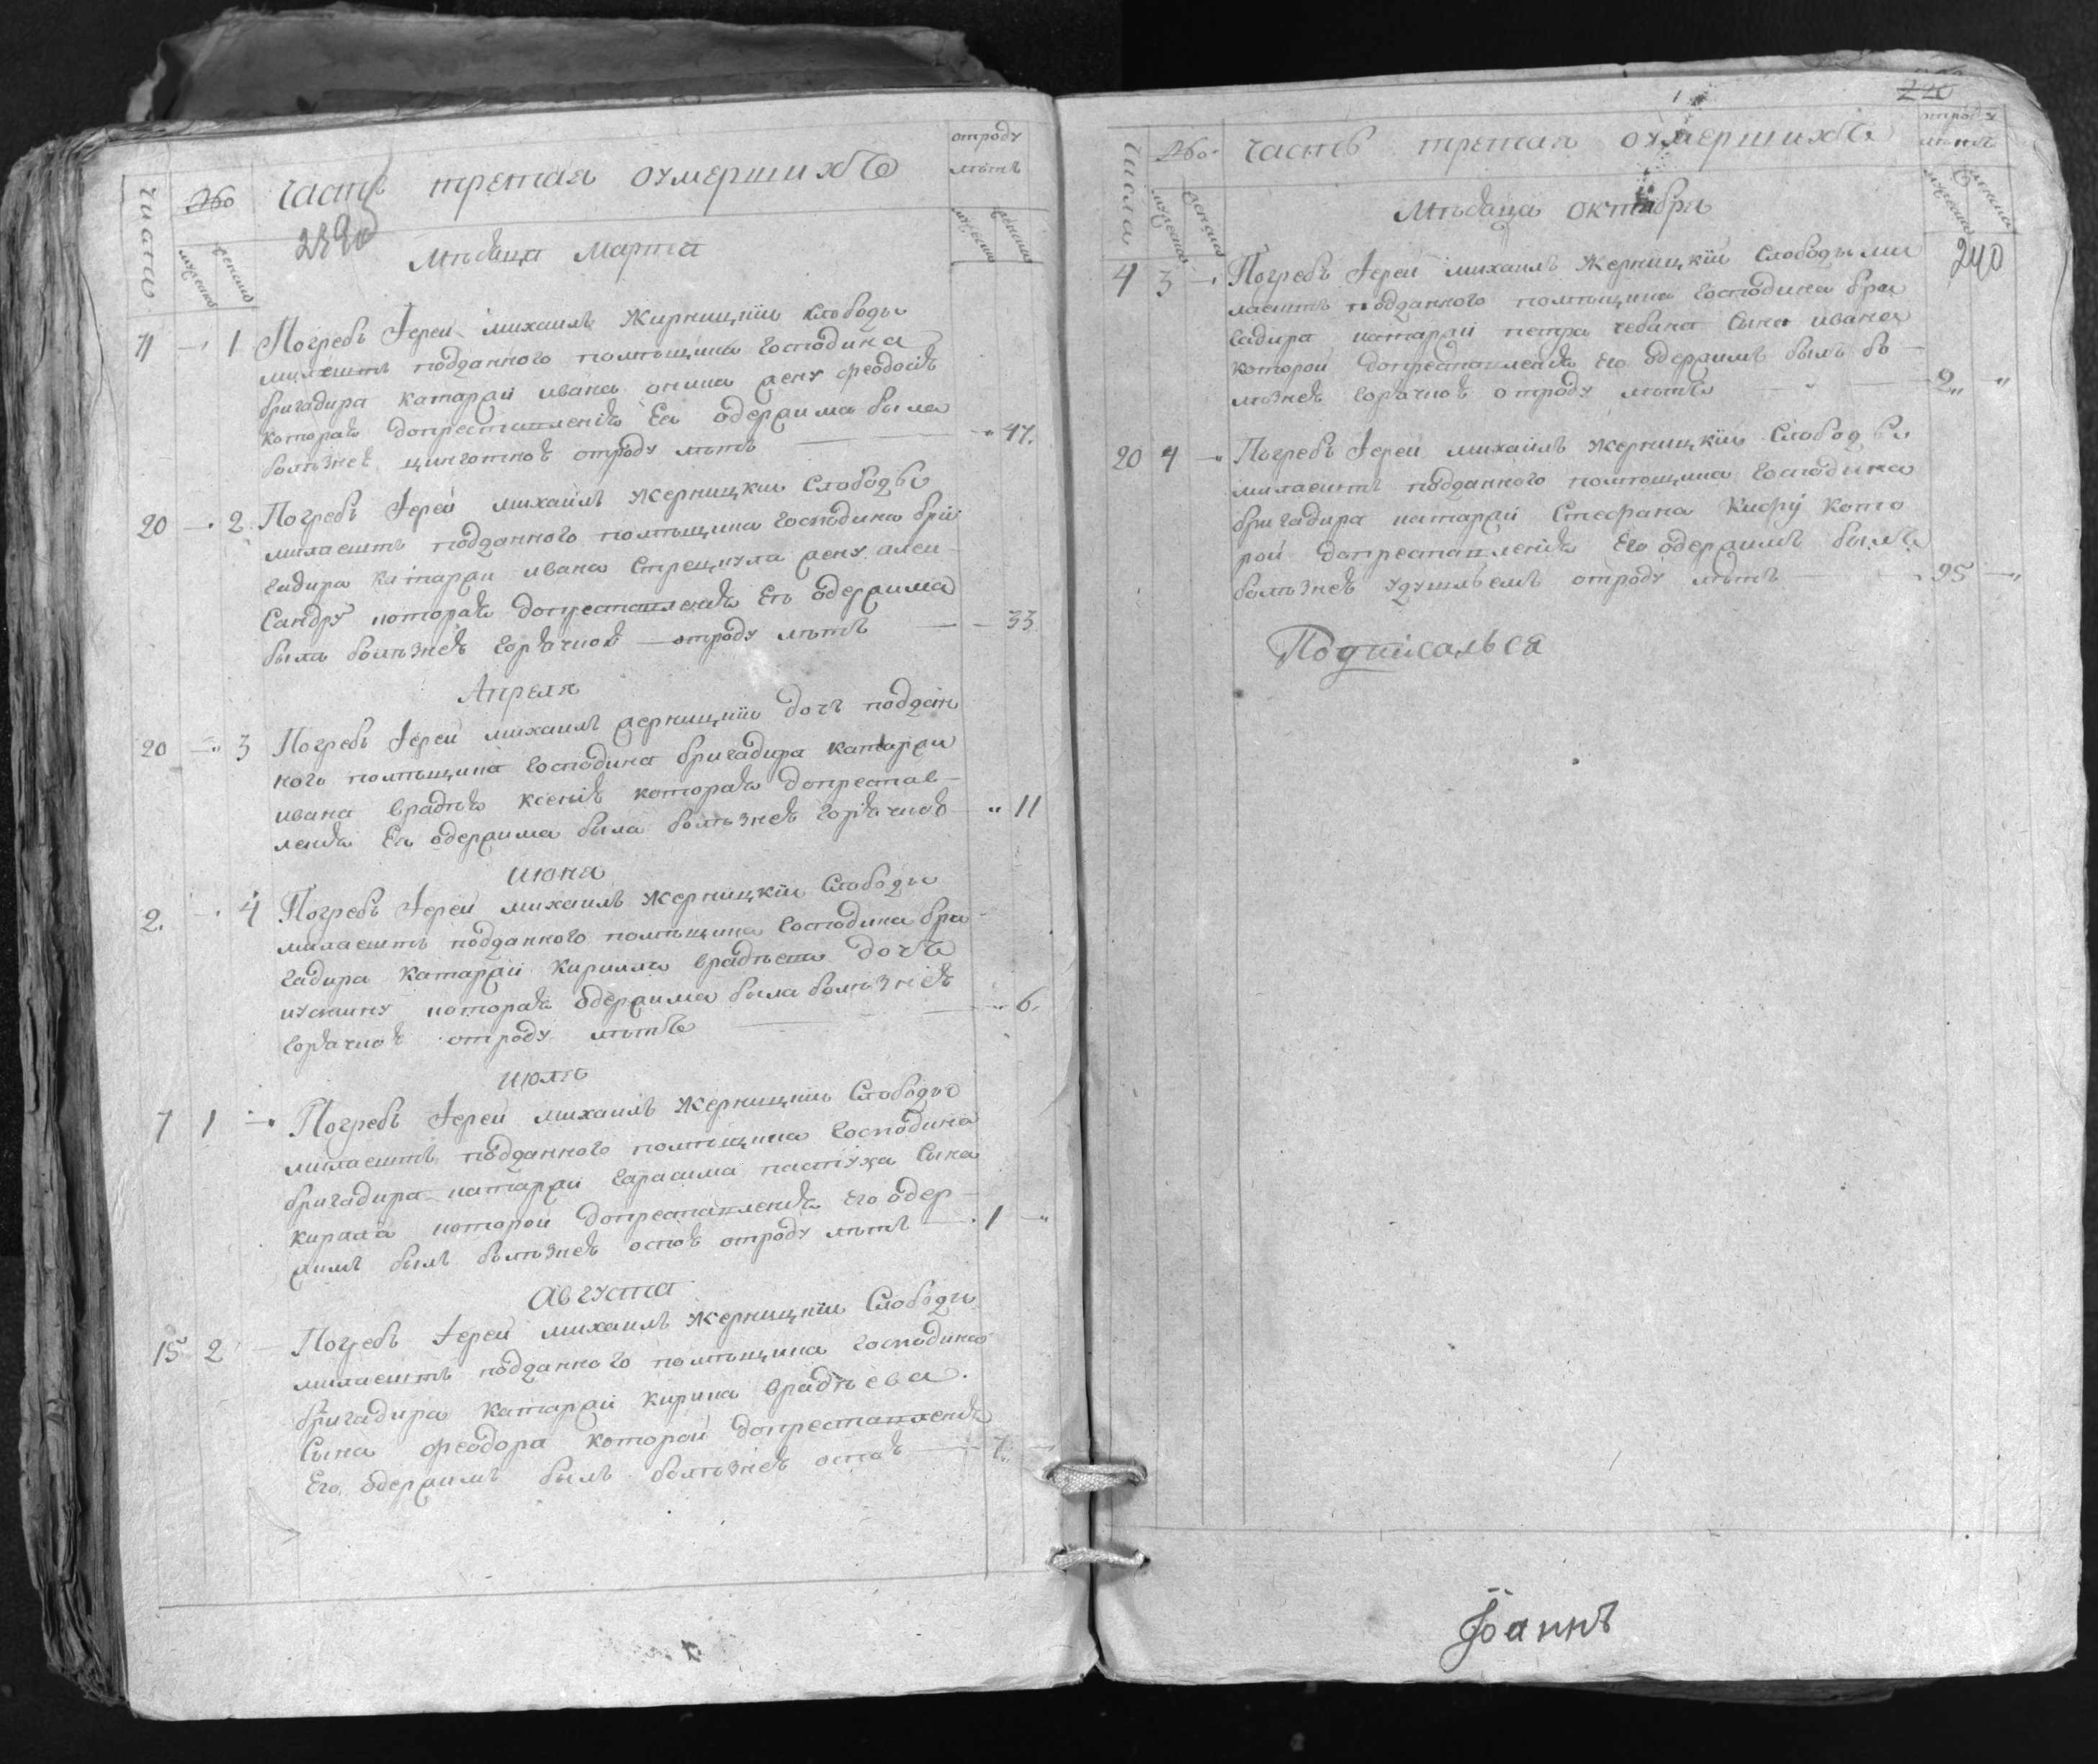 числа № часть третая оумершихъ отроду лѣтъ
мужеска женска 239об мужеска женска
Мѣсяца Марта
11 — 1 Погребъ Іерей михаилъ Жирницкїи слободы
милаештъ подданного помѣщика господина
бригадира катаржи ивана жену феодосїю
которая допреставленїя Ея одержима была
болѣзнею цинготною отроду лѣтъ — 47.
20 — 2 Погребъ Іерей михаилъ Жерницкїи Слободы
милаештъ подданного помѣщика господина бри
гадира катаржи ивана жену алек
сандру которая допреставленїя Ея одержима
была болѣзнею горячкою — отроду лѣтъ — 33
Апреля
20 — 3 Погребъ Іерей михаилъ жерницкїи дочь поддан
ного помѣщика господина бригадира катаржи
ивана врадїя ксенїю которая допрестав
ленїя Ея одержима была болѣзнею горячкою — 11
июня
2. — 4 Погребъ Іерей михаилъ Жерницкїи Слободы
милаештъ подданного помѣщика господина бри
гадира катаржи кирилла дочь
которая одержима была болѣзнею
горячкою отроду лѣтъ — 6.
июля
7 1 — Погребъ Іерей михаилъ Жерницкїи Слободы
милаештъ подданного помѣщика господина
бригадира катаржи гарасима пастуха Сына
кирила которой допреставленїя Его одер
жимъ былъ болѣзнею оспою отроду лѣтъ — 1 —
Августа
15 2 Погребъ Іерей михаилъ Жерницкїи Слободы
милаештъ подданного помѣщика господина
бригадира катаржи кирила врадїева
Сына феодора которой допреставленїя
Его одержимъ былъ болѣзнею оспою — 7.
числа № часть третая оумершихъ отроду лѣтъ
220
мужеска женска мужеска женска
Мѣсяца октября
240
4 3 — Погребъ Іерей михаилъ Жерницкїи Слободы ми
лаештъ подданного помѣщика господина бри
гадира катаржи петра чебана Сына ивана
которой допреставленїя его одержимъ былъ бо
лѣзнею горячкою отроду лѣтъ — 2 „
20 4 — Погребъ Іерей михаилъ Жерницкїи Слободы
милаештъ подданного помѣщика господина
бригадира катаржи Стефана кото
рой допреставленїя Его одержимъ былъ
болѣзнею удушьемъ отроду лѣтъ — 95 —
Подписалься
Іоаннъ